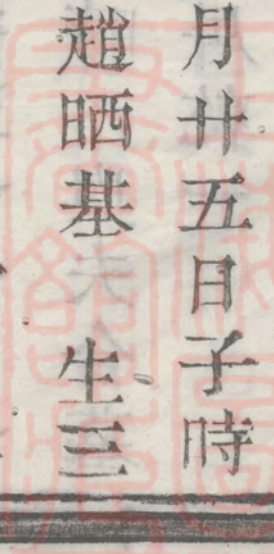 月廿五日子時
趙晒基 生三